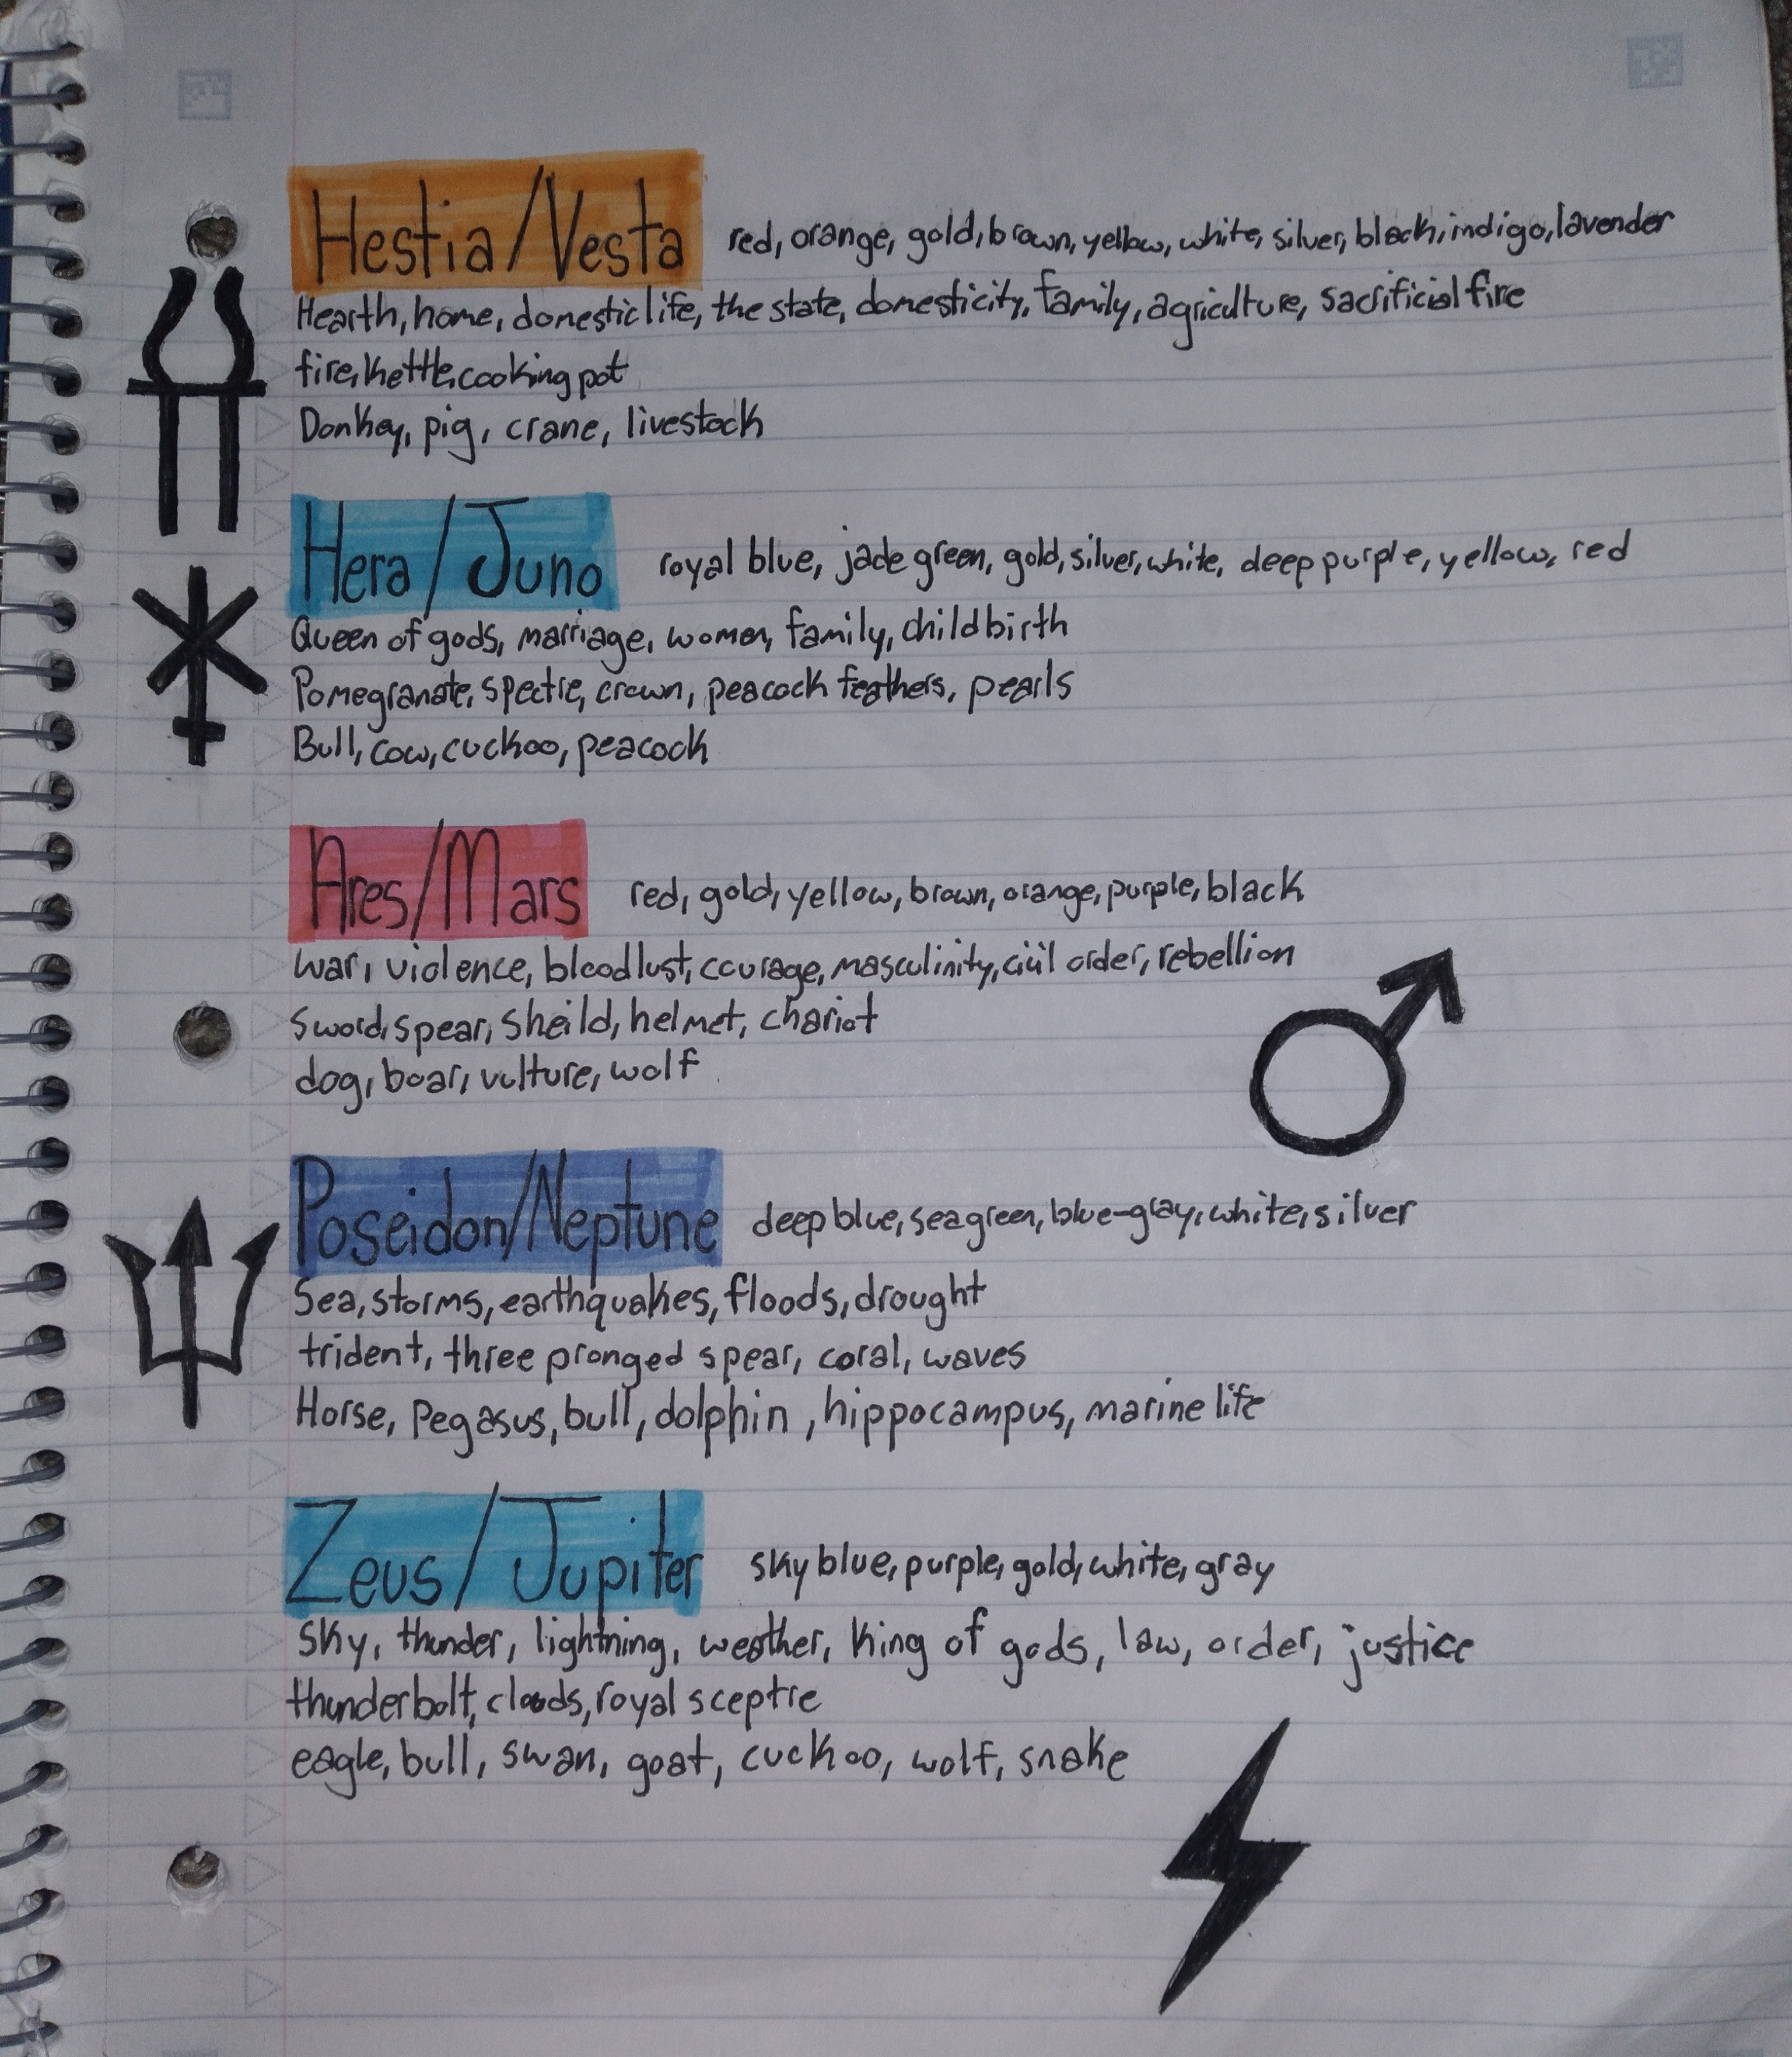 Hestia/Vesta red, orange, gold, brown, yellow, white, silver, black, indigo, lavender
Hearth, home, domestic life, the state, domesticity, family, agriculture, sacrificial fire
fire, kettle, cooking pot
Donkey, pig, crane, livestock
Hera/Juno royal blue, jade green, gold, silver, white, deep purple, yellow, red
Queen of gods, marriage, women, family, childbirth
Pomegranate, spectre, crown, peacock feathers, pearls
Bull, cow, cuckoo, peacock
Ares/Mars red, gold, yellow, brown, orange, purple, black
war, violence, bloodlust, courage, masculinity, civil order, rebellion
sword, spear, sheild, helmet, chariot
dog, boar, vulture, wolf
Poseidon/Neptune deep blue, sea green, blue-gray, white, silver
Sea, storms, earthquakes, floods, drought
trident, three pronged spear, coral, waves
Horse, Pegasus, bull, dolphin, hippocampus, marine life
Zeus/Jupiter sky blue, purple, gold, white, gray
sky, thunder, lightning, weather, king of gods, law, order, justice
thunderbolt, clouds, royal sceptre
eagle, bull, swan, goat, cuckoo, wolf, snake